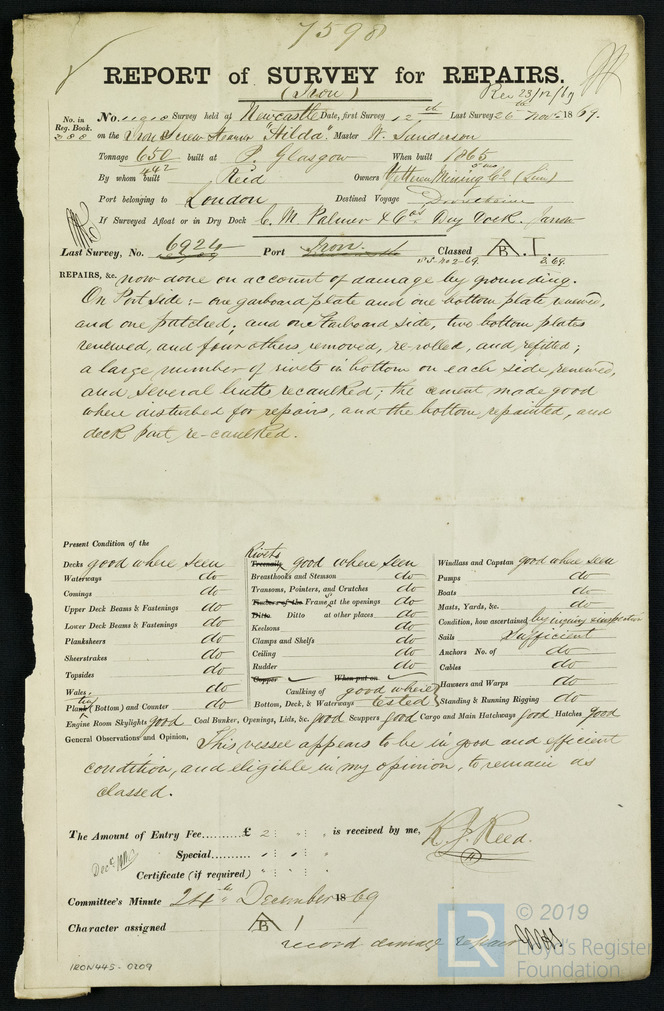 7598
REPORT of SURVEY for REPAIRS.
(Iron)
Rec 23/12/69
No. in Reg. Book. 388
No. Survey held at Newcastle Date, first Survey 12th Last Survey 26th Nov. 1869.
on the Iron Screw Steamer "Hilda" Master W. Sanderson
Tonnage 650 built at P. Glasgow When built 1865
442 5 mo
By whom built Reid Owners Mining Co (Lim)
Port belonging to London Destined Voyage
If Surveyed Afloat or in Dry Dock C. M. Palmer & Co's Dry Dock. Jarrow
Last Survey, No. 6924 Port Iron. Classed B. 1.
2.69.
REPAIRS, &c. now done on account of damage by grounding.
On Port Side :- one garboard plate and one bottom plate renewed,
and one patched; and one Starboard side, two bottom plates
renewed, and four others, removed, re-rolled, and, refitted;
a large number of rivets in bottom on each side renewed,
and several butts recaulked; the cement made good
where disturbed for repairs, and the bottom repainted, and
deck part, re-caulked.
Present Condition of the
Decks good where seen
Waterways do
Comings do
Upper Deck Beams & Fastenings do
Lower Deck Beams & Fastenings do
Planksheers do
Sheerstrakes do
Topsides do
Wales do
Plank (Bottom) and Counter do
Rivets
Treenails good where seen
Breasthooks and Stemson do
Transoms, Pointers, and Crutches do
Timbers of the Frames at the openings do
Ditto Ditto at other places do
Keelsons do
Clamps and Shelfs do
Ceiling do
Rudder do
Copper ✓ When put on ✓
Caulking of Bottom, Deck, & Waterways good where tested
Windlass and Capstan good where seen
Pumps do
Boats do
Masts, Yards, &c. do
Condition, how ascertained by inquiry & inspection
Sails Sufficient
Anchors No. of do
Cables do
Hawsers and Warps do
Standing & Running Rigging do
Engine Room Skylights good Coal Bunker, Openings, Lids, &c. good Scuppers good Cargo and Main Hatchways good Hatches good
General Observations and Opinion, This vessel appears to be in good and efficient
condition, and eligible in my opinion, to remain as
classed.
The Amount of Entry Fee......... £ 2 : : is received by me,
K. J. Reed.
Special............
Certificate (if required)
Committee's Minute 24th December 1869
Character assigned B 1
record damage repairs
IRON445-0209
LR © 2019
Lloyd's Register
Foundation